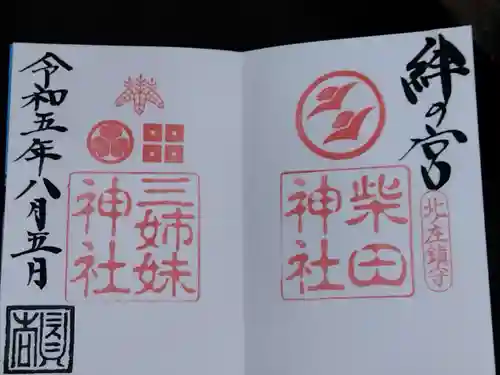 絆の宮
北ノ庄鎮守
柴田
神社
三姉妹
神社
令和五年八月五月